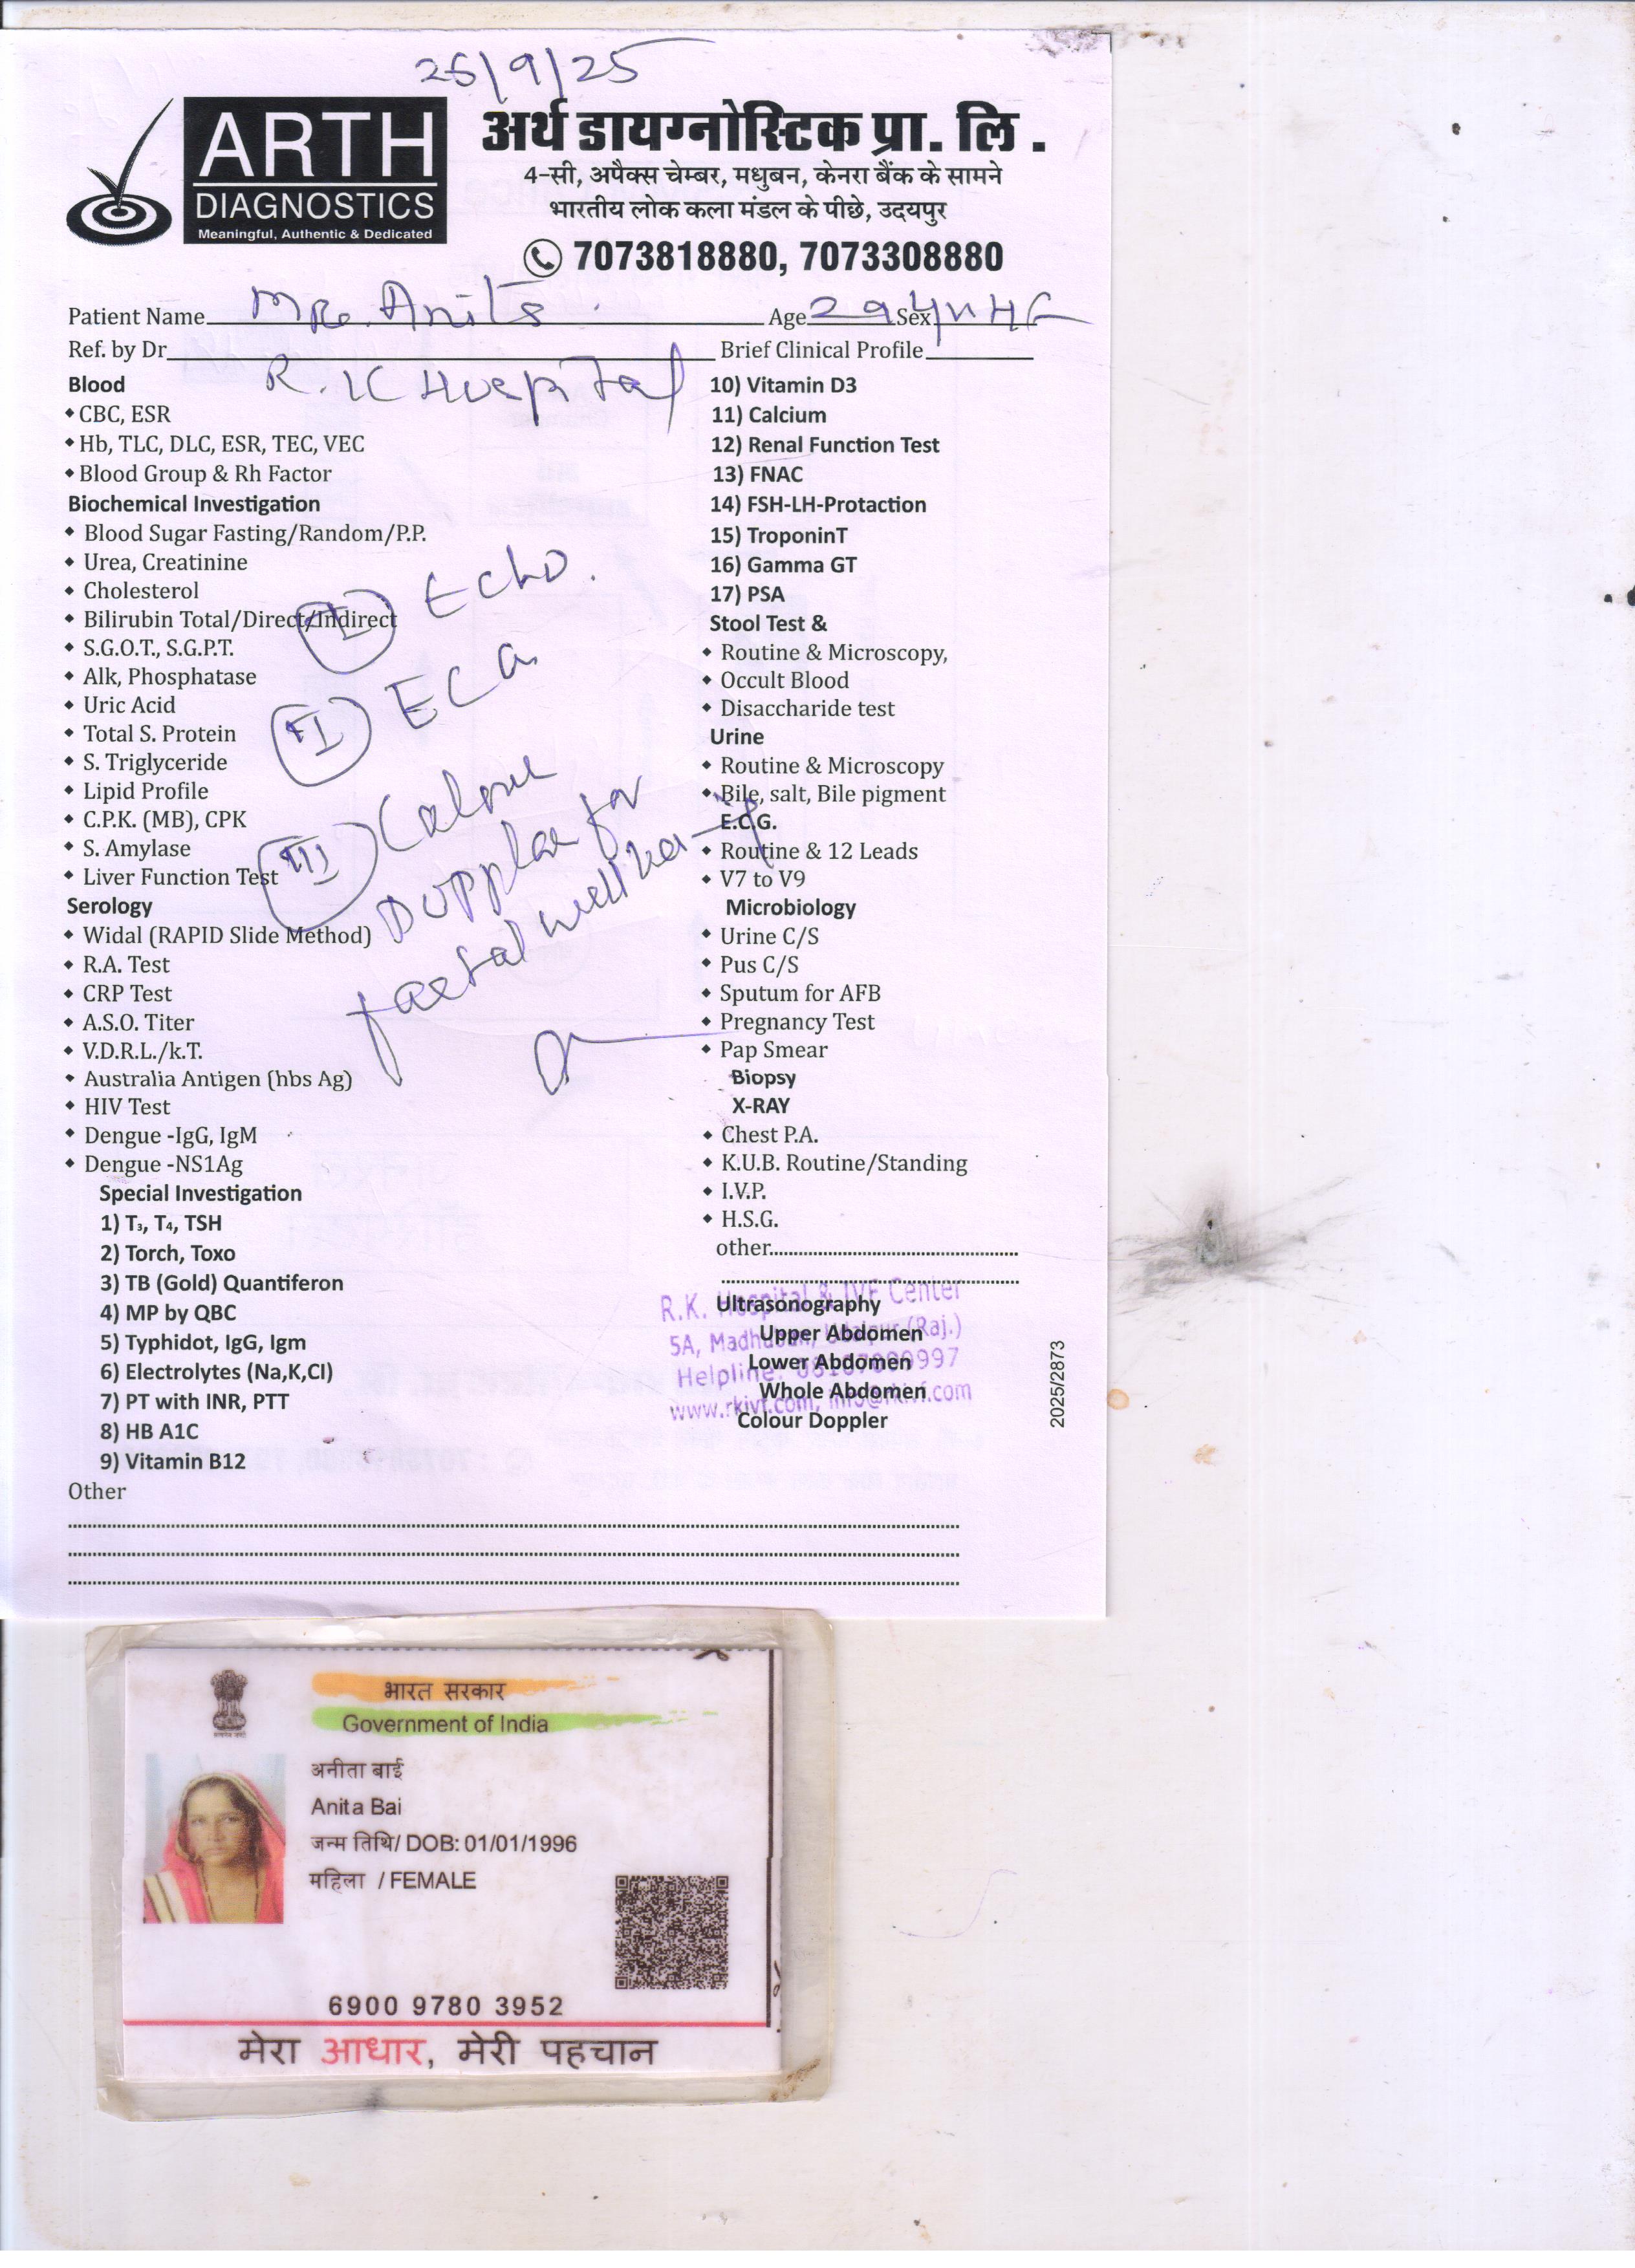 26/9/25
ARTH
DIAGNOSTICS
Meaningful, Authentic & Dedicated
अर्थ डायग्नोस्टिक प्रा. लि .
4-सी, अपैक्स चेम्बर, मधुबन, केनरा बैंक के सामने
भारतीय लोक कला मंडल के पीछे, उदयपुर
7073818880, 7073308880
Patient Name Age 29 Sex
Ref. by Dr Brief Clinical Profile
R.K Hospital
Blood
CBC, ESR
Hb, TLC, DLC, ESR, TEC, VEC
Blood Group & Rh Factor
Biochemical Investigation
Blood Sugar Fasting/Random/P.P.
Urea, Creatinine
Cholesterol
Bilirubin Total/Direct/Indirect
S.G.O.T., S.G.P.T.
Alk, Phosphatase
Uric Acid
Total S. Protein
S. Triglyceride
Lipid Profile
C.P.K. (MB), CPK
S. Amylase
Liver Function Test
Serology
Widal (RAPID Slide Method)
R.A. Test
CRP Test
A.S.O. Titer
V.D.R.L./k.T.
Australia Antigen (hbs Ag)
HIV Test
Dengue -IgG, IgM
Dengue -NS1Ag
Special Investigation
1) T₃, T₄, TSH
2) Torch, Toxo
3) TB (Gold) Quantiferon
4) MP by QBC
5) Typhidot, IgG, Igm
6) Electrolytes (Na,K,Cl)
7) PT with INR, PTT
8) HB A1C
9) Vitamin B12
Other
I Echo.
II ECG
III Colour
Doppler for
faetal well
10) Vitamin D3
11) Calcium
12) Renal Function Test
13) FNAC
14) FSH-LH-Protaction
15) TroponinT
16) Gamma GT
17) PSA
Stool Test &
Routine & Microscopy,
Occult Blood
Disaccharide test
Urine
Routine & Microscopy
Bile, salt, Bile pigment
E.C.G.
Routine & 12 Leads
V7 to V9
Microbiology
Urine C/S
Pus C/S
Sputum for AFB
Pregnancy Test
Pap Smear
Biopsy
X-RAY
Chest P.A.
K.U.B. Routine/Standing
I.V.P.
H.S.G.
other
Ultrasonography
Upper Abdomen
Lower Abdomen
Whole Abdomen
Colour Doppler
R.K. Hospital & IVF Center
5A, Madhuban, Udaipur (Raj.)
Helpline:
www.rkivf.com, info@rkivf.com
2025/2873
भारत सरकार
Government of India
अनीता बाई
Anita Bai
जन्म तिथि/ DOB: 01/01/1996
महिला / FEMALE
6900 9780 3952
मेरा आधार, मेरी पहचान